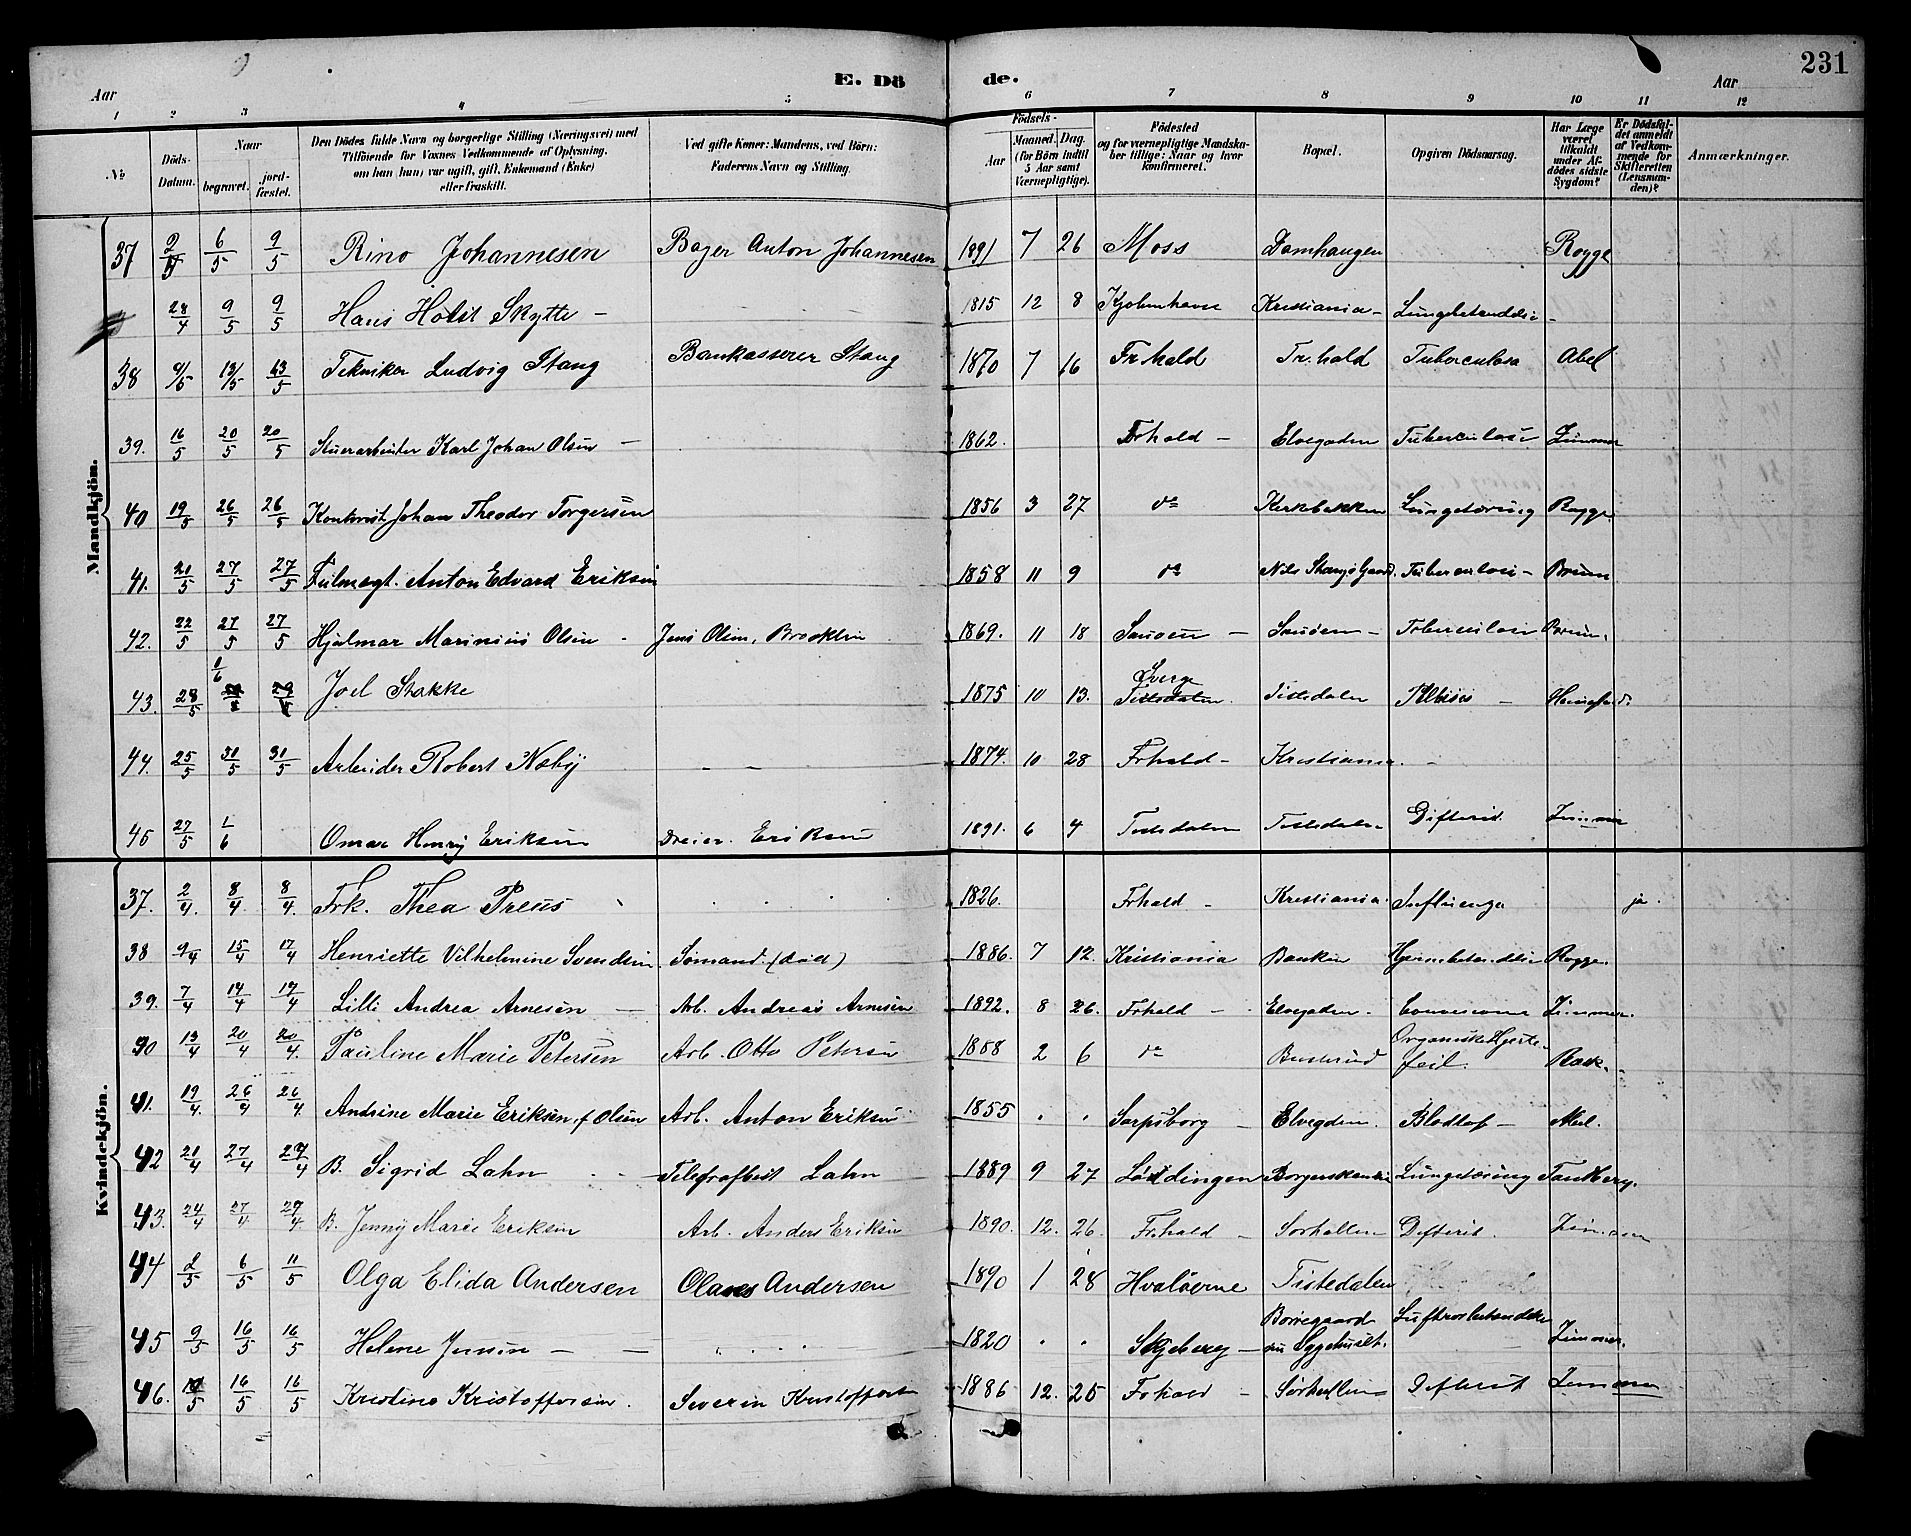 231
Aar E. Dö de. Aar
1 2 3 4 5 6 7 8 9 10 11 12
No
Döds-Datum.
Naar
begravet.
jordfæstet.
Den Dödes fulde Navn og borgerlige Stilling (Næringsvei) med
Tilföiende for Voxnes Vedkommende af Oplysning,
om han (hun) var ugift, gift, Enkemand (Enke)
eller fraskilt.
Ved gifte Koner: Mandens, ved Börn:
Faderens Navn og Stilling.
Födsels-
Aar
Maaned. Dag.
(for Börn indtil
5 Aar samt
Værnepligtige).
Födested
og for værnepligtige Mandska-
ber tillige: Naar og hvor
konfirmeret.
Bopæl.
Opgiven Dödsaarsag.
Har Læge
været
tilkaldt
under Af-
dödes sidste
Sygdom?
Er Dödsfal-
det anmeldt
af Vedkom-
mende for
Skifteretten
(Lensman-
den)?
Anmærkninger.
Mandkjön.
37 2/5 6/5 9/5 Rino Johannesen Bager Anton Johannesen 1891 7 26 Moss Damhaugen Rogge
28/4 9/5 9/5 Hans Holst Skytte – 1815 12 8 Kjøbenhavn Kristiania – Lungebetændelse –
38 9/5 13/5 13/5 Tekniker Ludvig Stang Bankasserer Stang 1870 7 16 Fr.hald Fr.hald Tuberculosa Abel
39. 16/5 20/5 20/5 Stuerarbeider Karl Johan Olsen – 1862. Frhald – Elvegaden Tuberculose Zimmer
40 19/5 26/5 26/5 Kontorist Johan Theodor Torgersen 1856 3 27 do Kirkebakken Lungetæring Rogge
41. 21/5 27/5 27/5 Fulmægt. Anton Edvard Eriksen 1858 11 9 do Nils Stangs Gaard. Tuberculose – Bruun
42. 22/5 27/5 27/5 Hjalmar Marinius Olsen – Jens Olsen, Brooklin 1869. 11 18 Sauøen – Sauøen – Tuberculose Bruun.
43. 28/5 1/6 29/5 Joel Stakke 1875 10 13. Sverge Tistedalen Tistedalen Phtisis –
44. 25/5 31/5 31/5 Arbeider Robert Næby – – 1874. 10 28 Frhald – Kristiania. –
45 27/5 1/6 Omar Henry Eriksen Dreier. Eriksen 1891. 6 4 Tistedalen Tistedalen Difterid. Zimmer
Kvindekjön.
37. 2/4. 8/4. 8/4. Frk. Thea Preus 1826. Frhald – Kristiania. Influenza ja.
38 9/4 15/4 17/4 Henriette Vilhelmine Svendsen. Sømand. (død) 1886. 7 12. Kristiania Banken Hjernebetændelse Rogge.
39. 7/4 14/4 14/4 Lilli Andrea Arnesen – Arb. Andreas Arnesen 1892. 8 26. Frhald – Elvegaden. Convusioner Zimmer.
40 13/4 20/4 20/4. Pauline Marie Petersen Arb. Otto Petersen 1888 2 6 do Buskrud Organisk Hjerte-feil. Rask. –
41. 19/4. 26/4 26/4 Andrine Marie Eriksen, f Olsen Arb. Anton Eriksen 1855 " " Sarpsborg – Elvegden. Blodtab – Abel.
42 21/4 27/4 27/4 B. Sigrid Lahn – – Telegrafbest Lahn 1889 9 27 Lødingen Borgerskandsen Lungetæring Tankberg.
43. 24/4 27/4 27/4. B. Jenny Marie Eriksen Arb. Anders Eriksen 1890. 12. 26. Frhald – Sørhallen Difterit. Zimmer
44 2/5 6/5 11/5 Olga Elida Andersen Olaves Andersen 1890 1 28 Hvaløerne Tistedalen
45 9/5 16/5 16/5 Helene Jensen – – 1820 " " Skjeberg – Borregaard nu Sygehuset. Luftrørbetændelse Zimmer.
46. 16/5 16/5 Kristine Kristoffersen. Severin Kristoffersen 1886 12. 25 Frhald – Sørhallen Difterit Zimmer